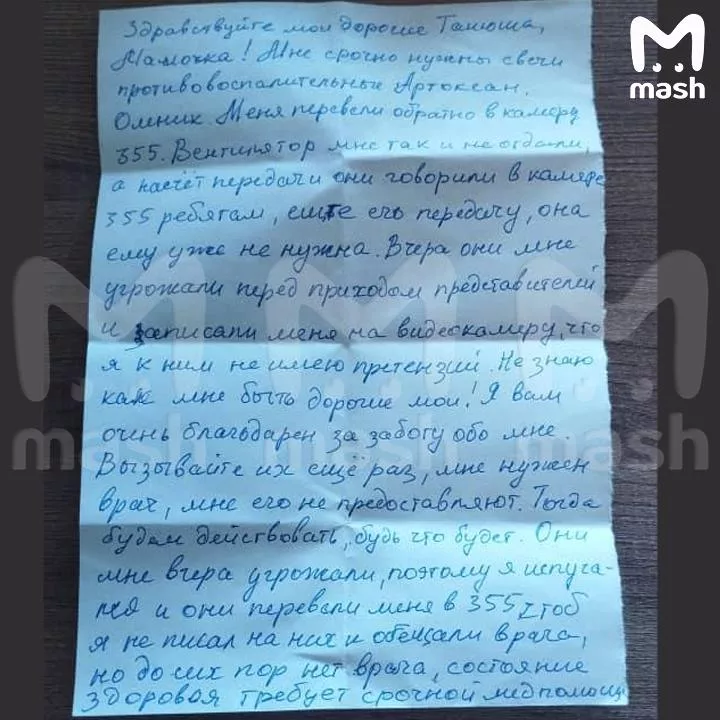 mash
Здравствуйте мои дорогие Танюша,
Мамочка! Мне срочно нужны свечи
противовоспалительные Артоксан.
Омник. Меня перевели обратно в камеру
355. Вентилятор мне так и не отдали,
а насчёт передачи они говорили в камере
355 ребятам, ешьте его передачу, она
ему уже не нужна. Вчера они мне
угрожали перед приходом представителей
и записали меня на видеокамеру, что
я к ним не имею претензий. Не знаю
как мне быть дорогие мои! Я вам
очень благодарен за заботу обо мне.
Вызывайте их ещё раз, мне нужен
врач, мне его не предоставляют. Тогда
будем действовать, будь что будет. Они
мне вчера угрожали, поэтому я испуга-
лся и они перевели меня в 355 чтоб
я не писал на них и обещали врача,
но до сих пор нет врача, состояние
здоровья требует срочной медпомощи
mash mash mash